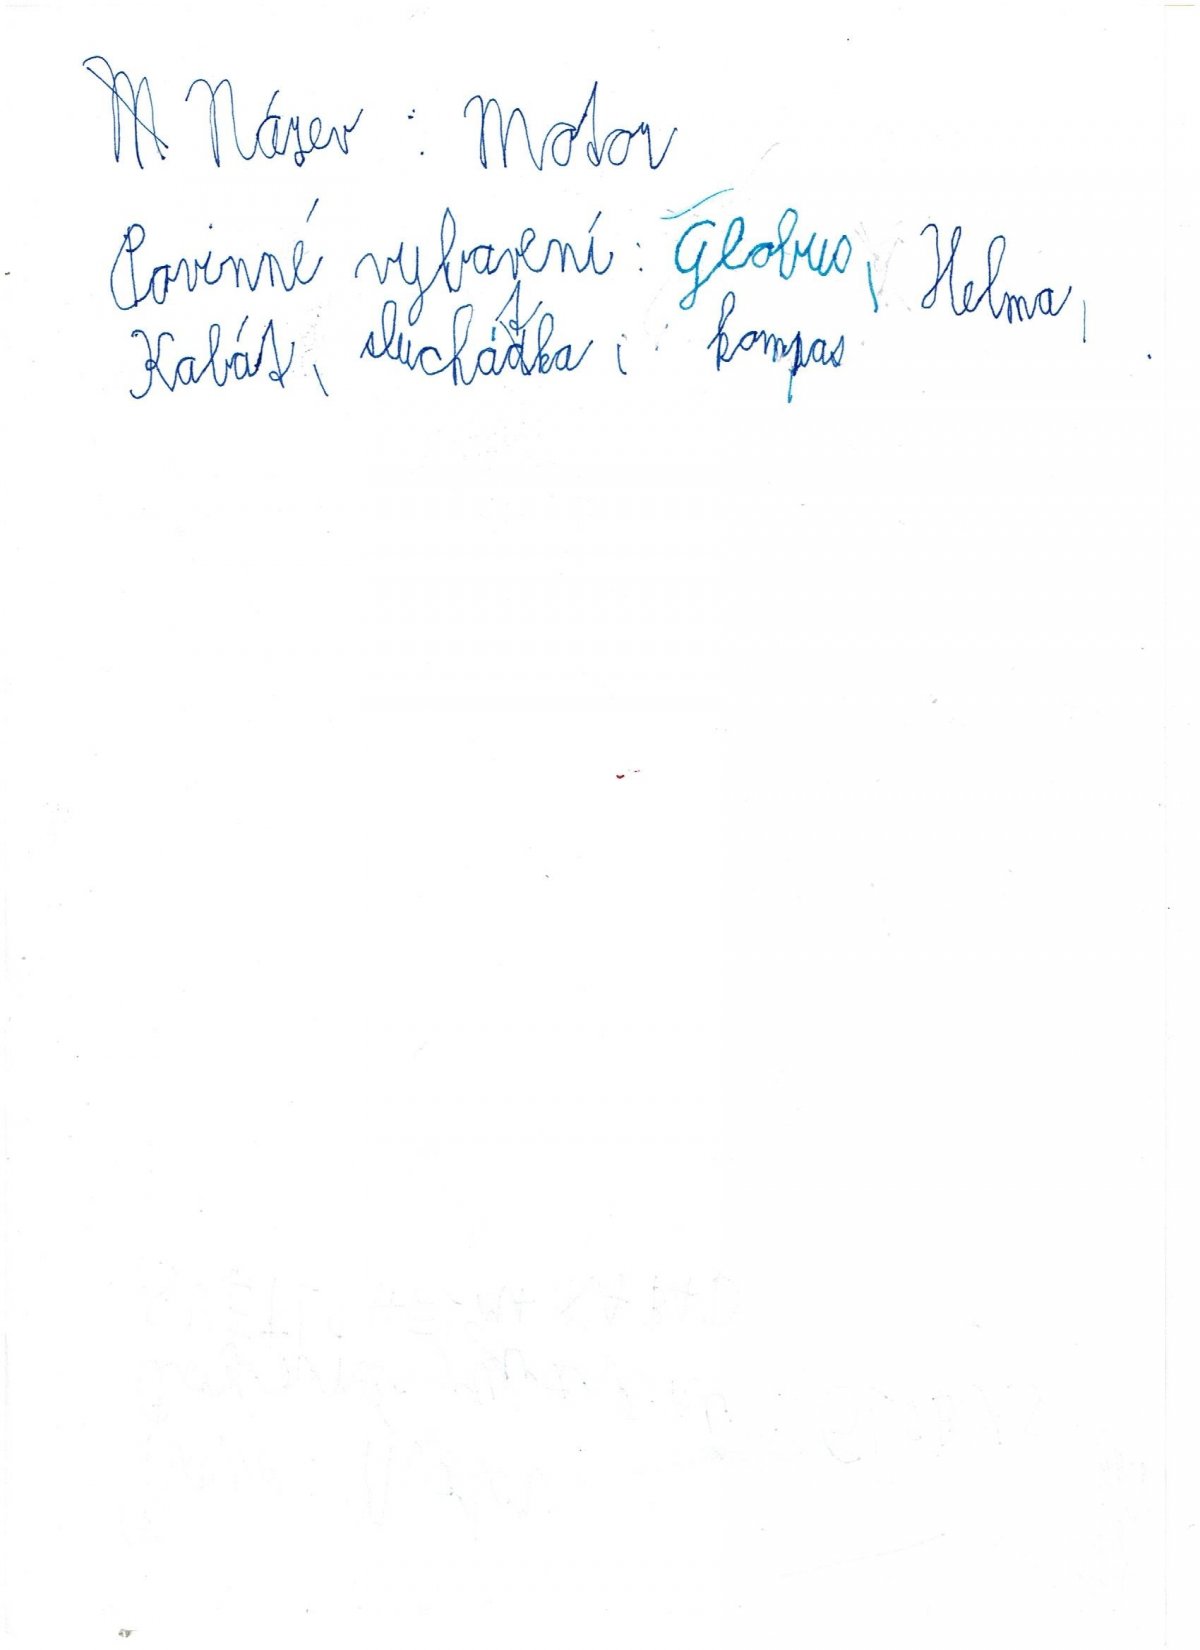 Název : Motor
Povinné vybavení : Globus, Helma,
Kabát, sluchátka, kompas